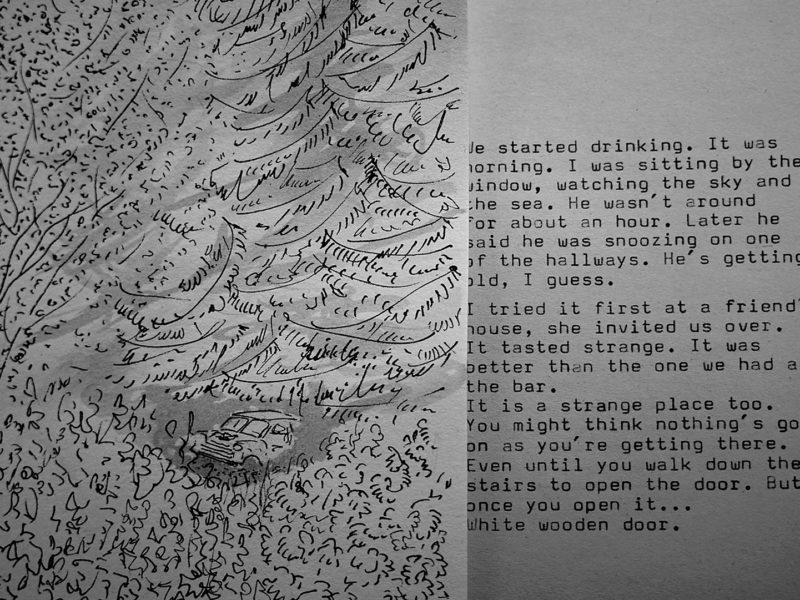 We started drinking. It was
morning. I was sitting by the
window, watching the sky and
the sea. He wasn't around
for about an hour. Later he
said he was snoozing on one
of the hallways. He's getting
old, I guess.
I tried it first at a friend'
house, she invited us over.
It tasted strange. It was
better than the one we had a
the bar.
It is a strange place too.
You might think nothing's go
on as you're getting there.
Even until you walk down the
stairs to open the door. But
once you open it...
White wooden door.